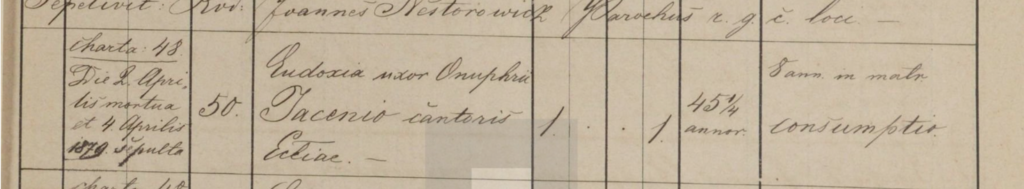 Sepelivit: Rvd: Joannes Nestorowicz Parochus r. g. c. loci —
charta: 48
Die 2. Apri-
lis mortua
et 4. Aprilis
1879. sepulta
50.
Eudoxia uxor Onuphrii
Jacenio cantoris
Eccliae. —
1 . . 1.
45 1/4
annor.
8 ann. in matr.
consumptio.
charta 48